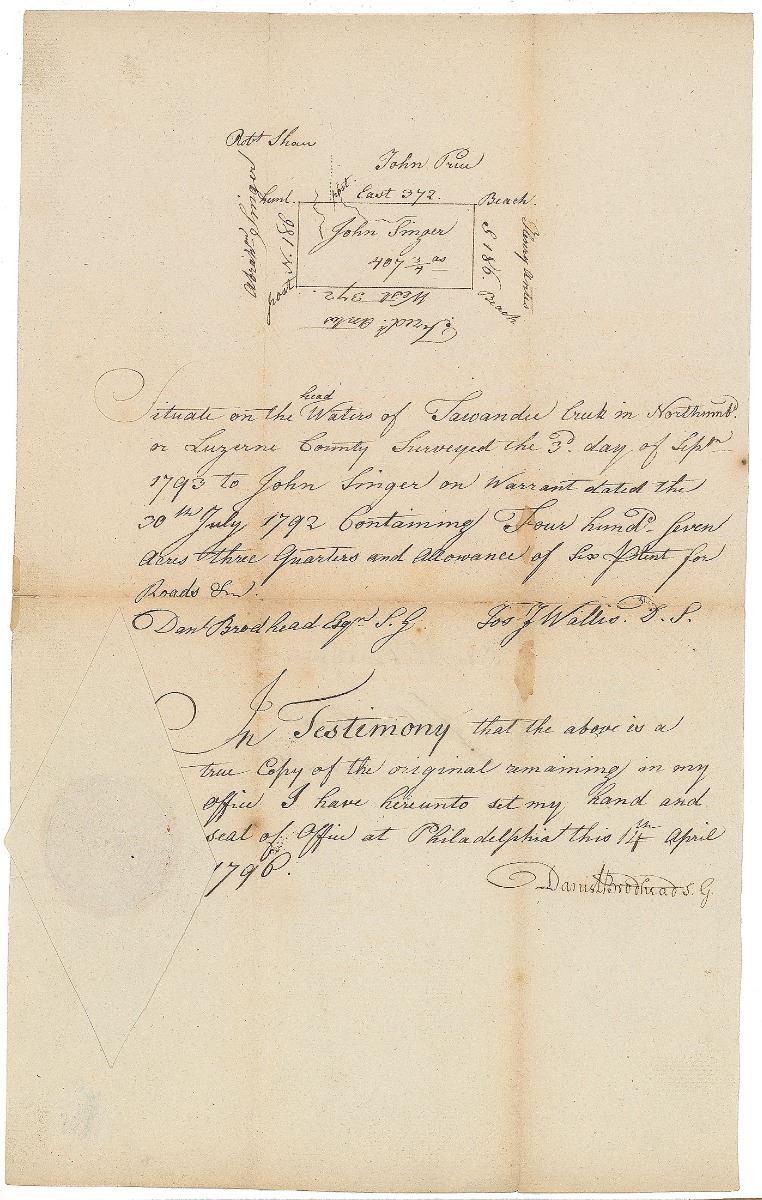 Robt Shaw
John Price
Abrahm Singer
heml.
post
East 372.
Beach.
John Singer
407 3/4 as
N. 186
post
S 186.
Beach
Henry Antes
West 372.
Fredk. Antes
Situate on the head Waters of Tawandee Creek in Northumbd.
or Luzerne County Surveyed the 3d. day of Septr
1793 to John Singer on Warrant dated the
30th July 1792 Containing Four hundd. Seven
Acres three Quarters and Allowance of Six P Cent for
Roads &c.
Danl Brodhead Esqr S. G. Jos J Wallis. D. S.
In Testimony that the above is a
true Copy of the original remaining in my
Office I have hereunto set my hand and
seal of Office at Philadelphia this 14th April
1796.
Daniel Brodhead S. G